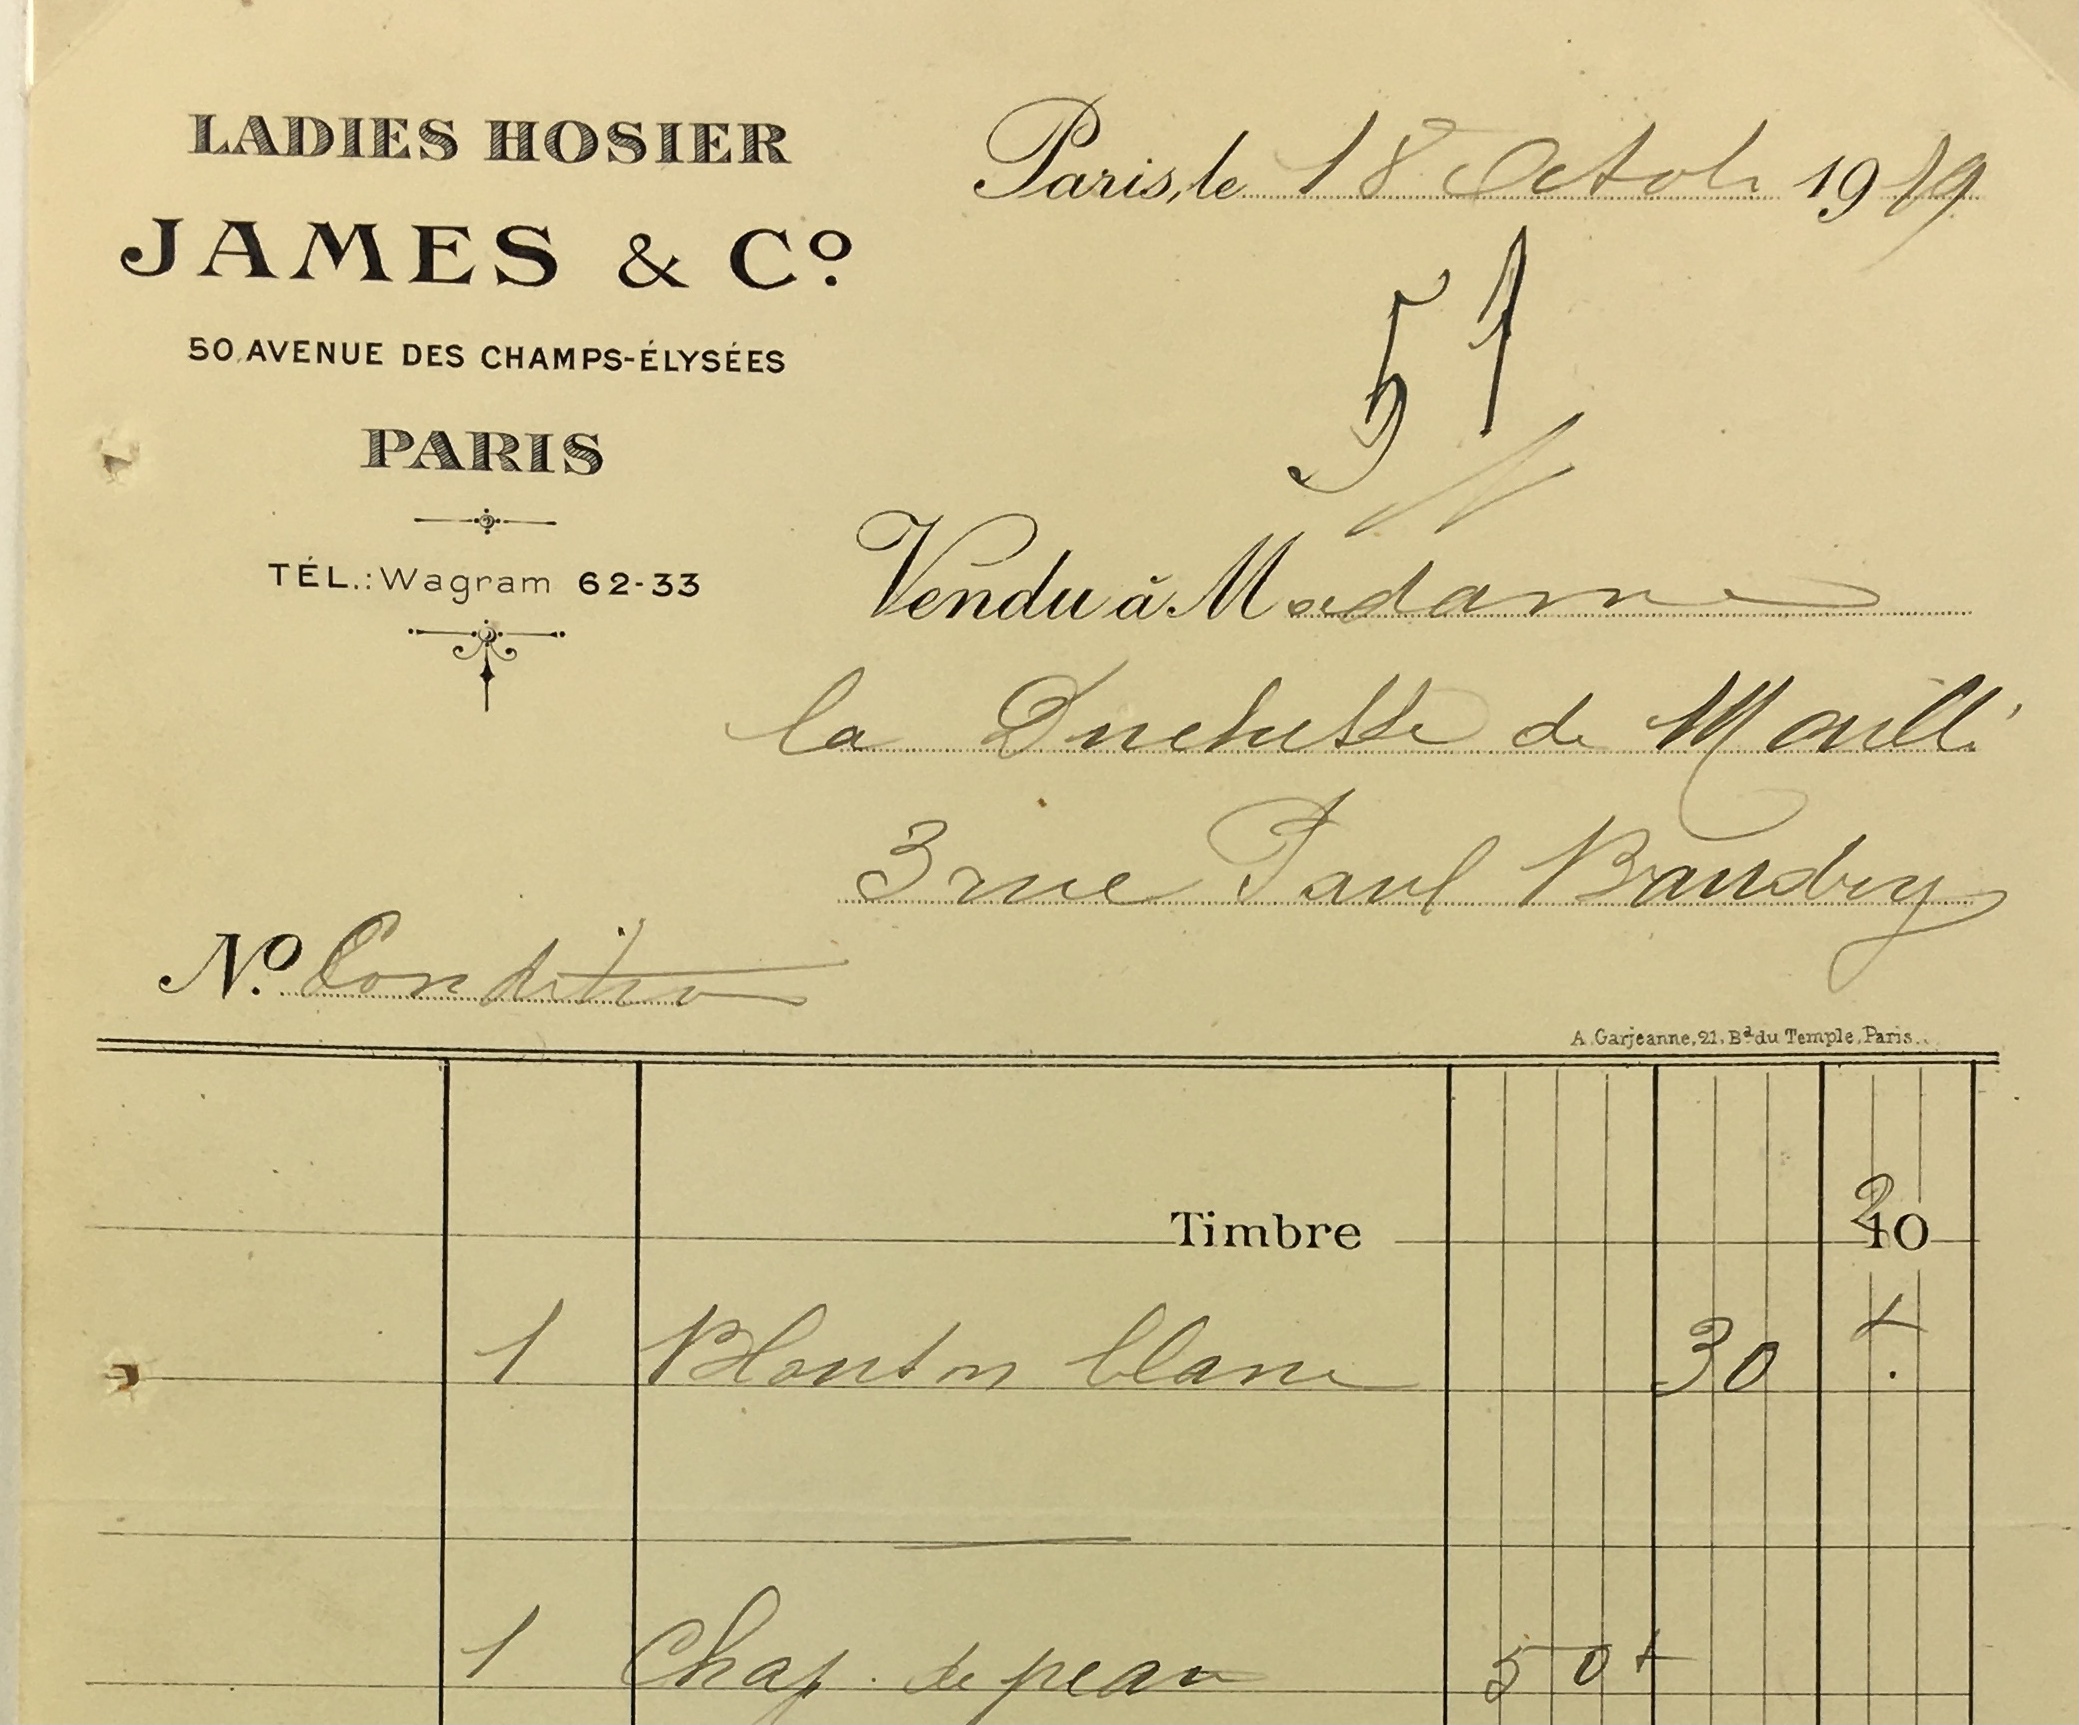 LADIES HOSIER
JAMES & Cº.
50, AVENUE DES CHAMPS-ÉLYSÉES
PARIS
TÉL.: Wagram 62-33
Paris, le 18 Octob. 1919
51
Vendu à Madame
la Duchesse de Maillé
3 rue Paul Baudry
Nº. Condition
A. Garjeanne, 21, Bd du Temple, Paris.
Timbre 20
1 blanc 30
1 Chap. de peau 50